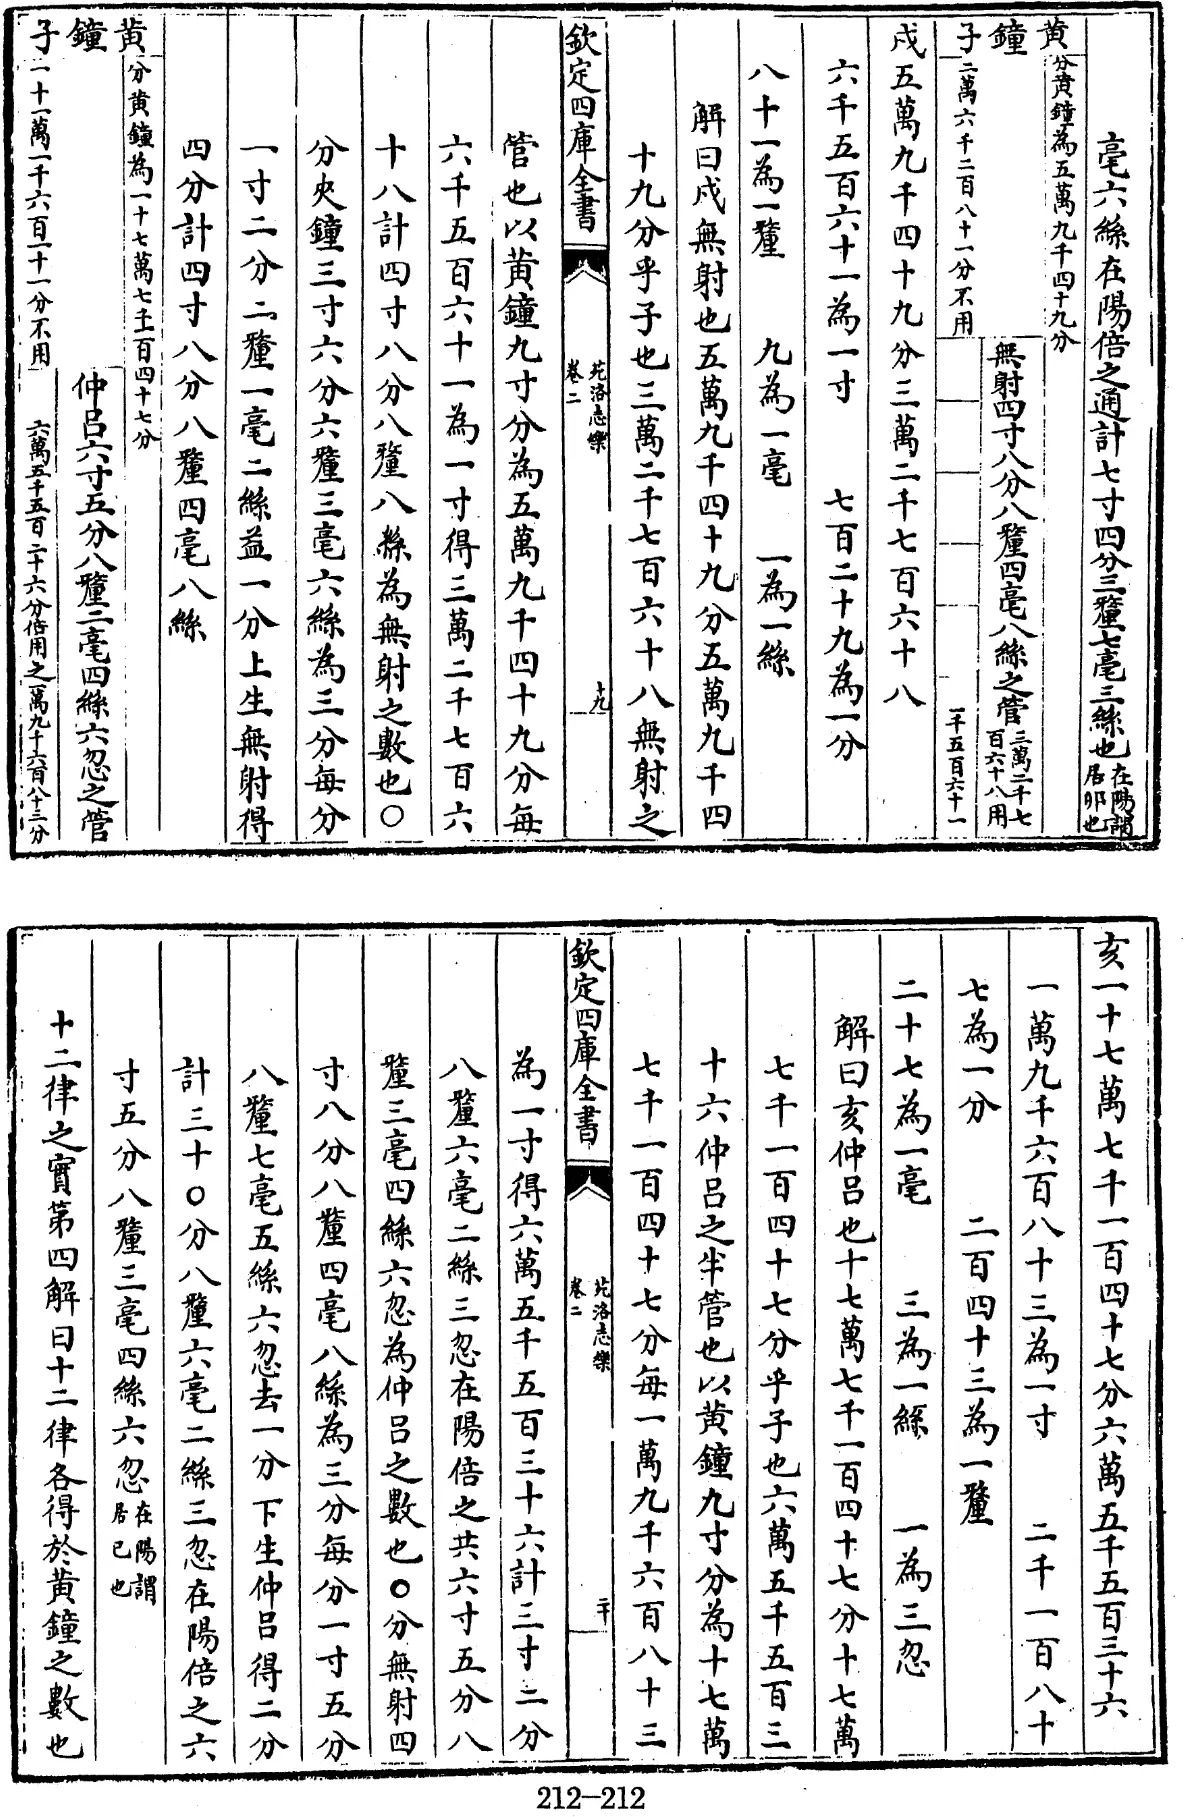 毫六絲在陽倍之通計七寸四分三釐七毫三絲也在陽謂居卯也
黃鐘子
分黃鐘為五萬九千四十九分
二萬六千二百八十一分不用
無射四寸八分八釐四毫八絲之管三萬二千七百六十八用
一千五百六十一
戌五萬九千四十九分三萬二千七百六十八
六千五百六十一為一寸 七百二十九為一分
八十一為一釐 九為一毫 一為一絲
解曰戌無射也五萬九千四十九分五萬九千四
十九分乎子也三萬二千七百六十八無射之
欽定四庫全書
苑洛志樂
卷二
十九
管也以黃鐘九寸分為五萬九千四十九分每
六千五百六十一為一寸得三萬二千七百六
十八計四寸八分八釐八絲為無射之數也○
分夾鐘三寸六分六釐三毫六絲為三分每分
一寸二分二釐一毫二絲益一分上生無射得
四分計四寸八分八釐四毫八絲
黃鐘子
分黃鐘為一十七萬七千一百四十七分
一十一萬一千六百一十一分不用
仲呂六寸五分八釐三毫四絲六忽之管
六萬五千五百三十六分倍用之一萬九千六百八十三分
亥一十七萬七千一百四十七分六萬五千五百三十六
一萬九千六百八十三為一寸 二千一百八十
七為一分 二百四十三為一釐
二十七為一毫 三為一絲 一為三忽
解曰亥仲呂也十七萬七千一百四十七分十七萬
七千一百四十七分乎子也六萬五千五百三
十六仲呂之半管也以黃鐘九寸分為十七萬
七千一百四十七分每一萬九千六百八十三
欽定四庫全書
苑洛志樂
卷二
二十
為一寸得六萬五千五百三十六計三寸二分
八釐六毫二絲三忽在陽倍之共六寸五分八
釐三毫四絲六忽為仲呂之數也○分無射四
寸八分八釐四毫八絲為三分每分一寸五分
八釐七毫五絲六忽去一分下生仲呂得二分
計三十○分八釐六毫二絲三忽在陽倍之六
寸五分八釐三毫四絲六忽在陽謂居巳也
十二律之實第四解曰十二律各得於黃鐘之數也
212—212